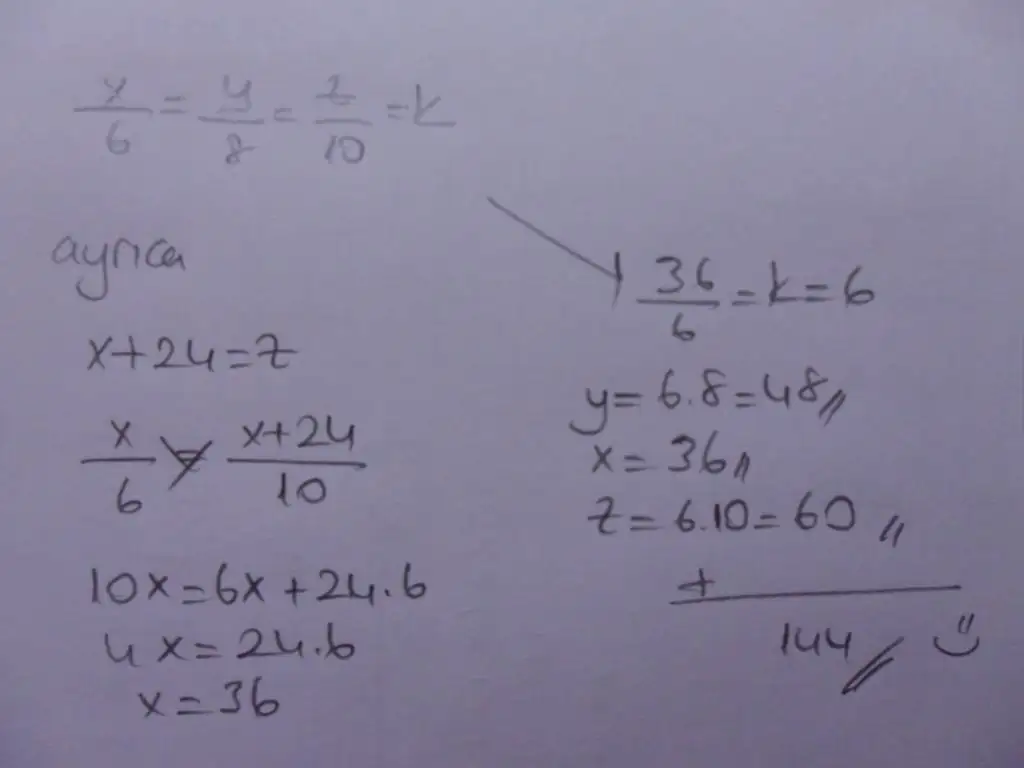 x/6 = y/8 = z/10 = k
ayrıca
x+24=z
x/6 = x+24/10
10x=6x+24.6
4x=24.6
x=36
36/6 = k = 6
y= 6.8=48//
x= 36//
z= 6.10=60 //
+
144 //